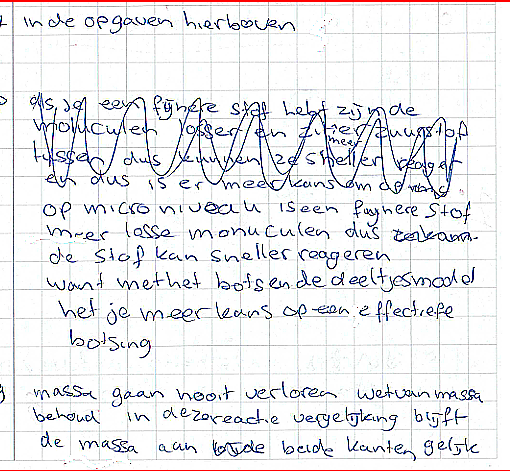 in de opgaven hierboven
als je een fijnere stof hebt zijn de
moluculen losser en zit er zuurstof
tussen dus kunnen ze sneller reager
en dus is er meer kans om
op micro niveau is een fuynere stof
meer losse monuculen dus
de stof kan sneller reageren
want met het botsende deeltjesmodel
het je meer kans op een effectiefe
botsing
massa gaan nooit verloren wet van massa
behoud in deze reactie vergelijking blijft
de massa aan beide kanten gelijk